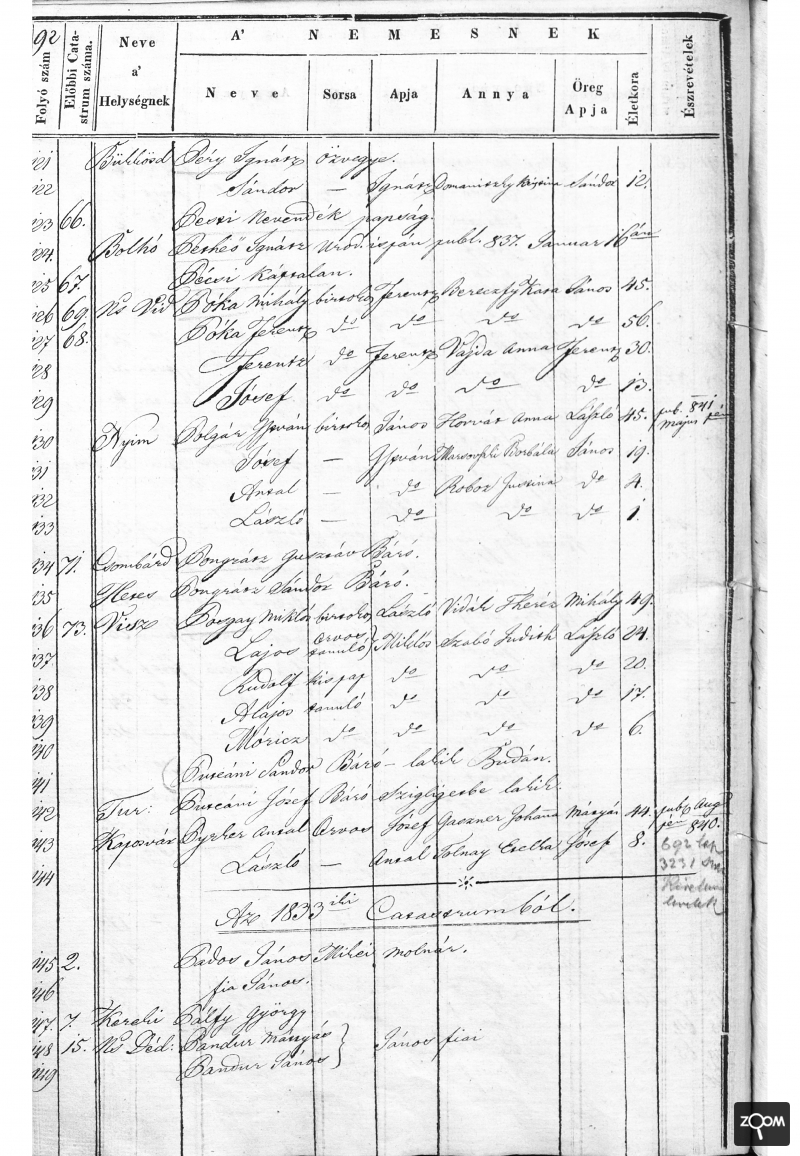 92
Folyó szám
Előbbi Cata-
strum száma.
Neve
a'
Helységnek
A' NEMESNEK
Neve
Sorsa
Apja
Annya
Öreg
Apja
Életkora
Észrevételek
121 Büssösd Péry Ignátz özvegye.
122 Sándor — Ignátz Domaniczky Sándor 12.
123 66. Pesti Nevendék papság.
124 Bolhó Ignátz Urod. ispán publ. 837. Januar 16án
125 67. Pécsi káptalan.
126 69. Ns Vid Póka Mihály birtokos Ferentz Bereczfy Kata János 45.
127 68. Póka Ferentz do do do do 56.
128 Ferentz do Ferentz Vajda Anna Ferentz 30.
129 Jósef do do do do 13.
130 Nyim Polgár István birtokos János Horvát Anna László 45. pub. 841 május
131 Jósef — István Borbála János 19.
132 Antal — do Roboz Justina do 4.
133 László — do do do 1.
134 71. Csombárd Pongrátz Gusztáv Báró.
135 Hetes Pongrátz Sándor Báró.
136 73. Visz Pozgay Miklós birtokos László Vidák Theréz Mihály 49.
137. Lajos orvos tanuló Miklós Szabó Judith László 24.
138 Rudolf kispap do do do 20.
139 Alajos tanuló do do do 17.
140 Móricz do do do do 6.
141 Puteáni Sándor Báró – lakik Budán.
142 Tur: Puteáni Jósef Báró Szigligetbe lakik.
143 Kaposvár Antal Orvos Jósef Johanna Mátyás 44. pub. Aug 840.
144 László — Antal Tolnay Etelka Jósef 8.
692 lap
3231
levelek
Az 1833iki Catastrumból.
145 2. Pados János Mikei molnár.
146 fia János.
147. 7. Kereki Pálfy György
148 15. Ns Déd: Pandur Mátyás } János fiai
149 Pandur János
ZOOM